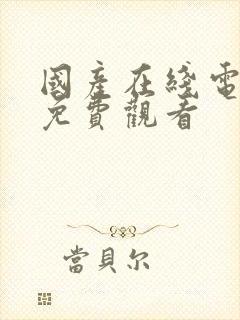 國產在綫電
免費觀看
當貝尔